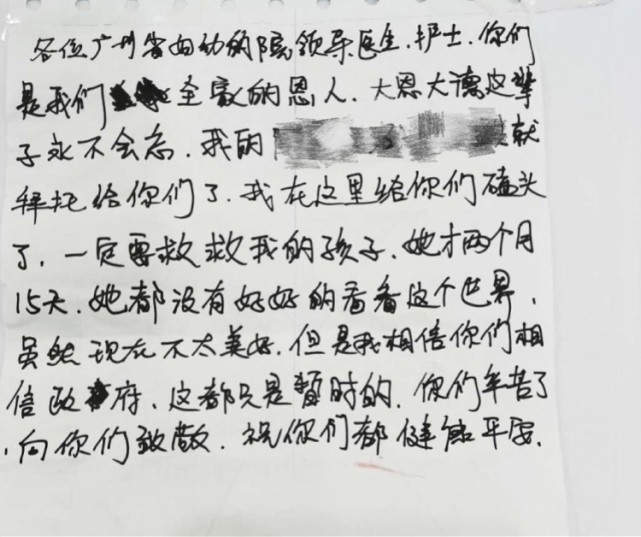 各位广州省妇幼的院领导医生.护士.你们
是我们全家的恩人.大恩大德这辈
子永不会忘.我的就
拜托给你们了.我在这里给你们磕头
了.一定要救救我的孩子.她才两个月
15天.她都没有好好的看看这个世界.
虽然现在不太美好.但是我相信你们相
信政府.这都只是暂时的.你们辛苦了
.向你们致敬.祝你们都健康平安.